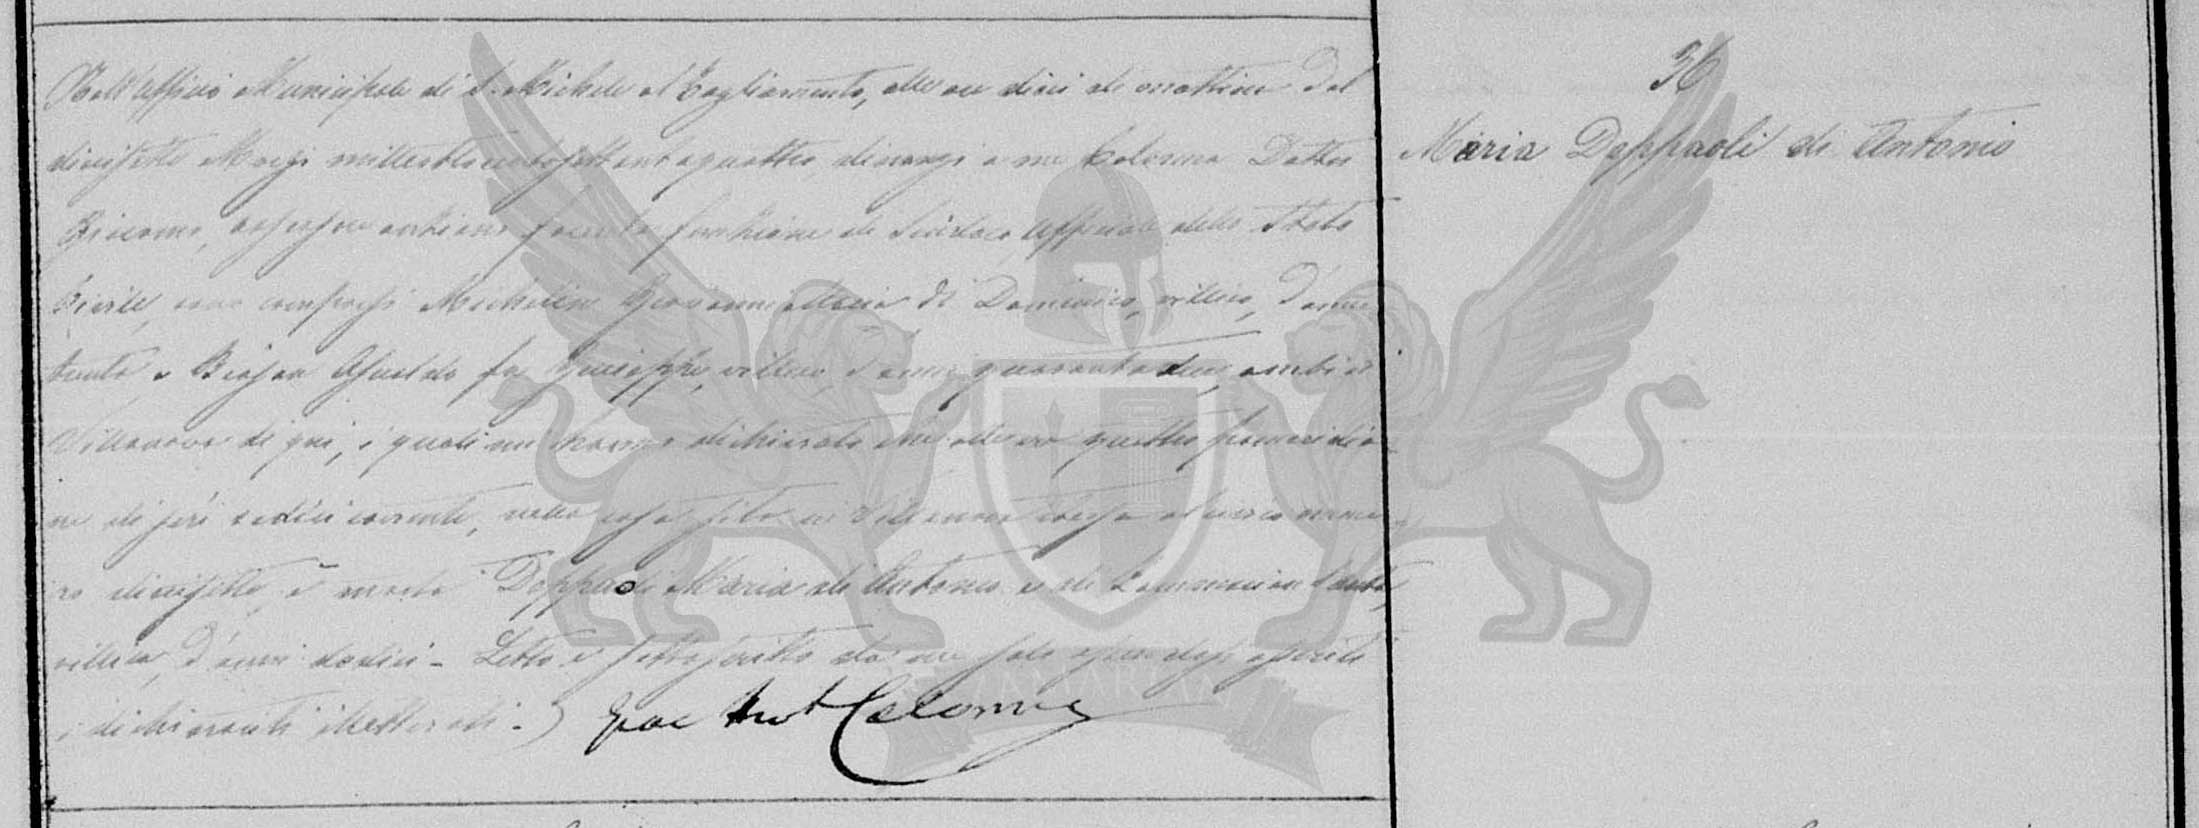 Nell'Ufficio Municipale di S. Michele al Tagliamento, alle ore dieci di mattina del
diecisette Marzo milleottocentosettantaquattro, dinanzi a me Colonna Dottor
Giacomo, assessore anziano facente funzione di Sindaco Ufficiale dello Stato
Civile, sono comparsi Michelin Giovanni Maria di Domenico, villico, d'anni
trenta e Biason Osualdo fu Giuseppe, villico d'anni quarantadue, ambi di
Villanova di qui, i quali mi hanno dichiarato che alle ore quattro pomeridia-
ne di jeri sedici corrente, nella casa sita in Villanova stessa al civico nume-
ro diecisette, è morta Doppaoli Maria di Antonio e di
villica, d'anni dodici - Letto e sottoscritto da me solo
i dichiaranti illetterati -
Giac Ant Colonna
36
Maria Doppaoli di Antonio